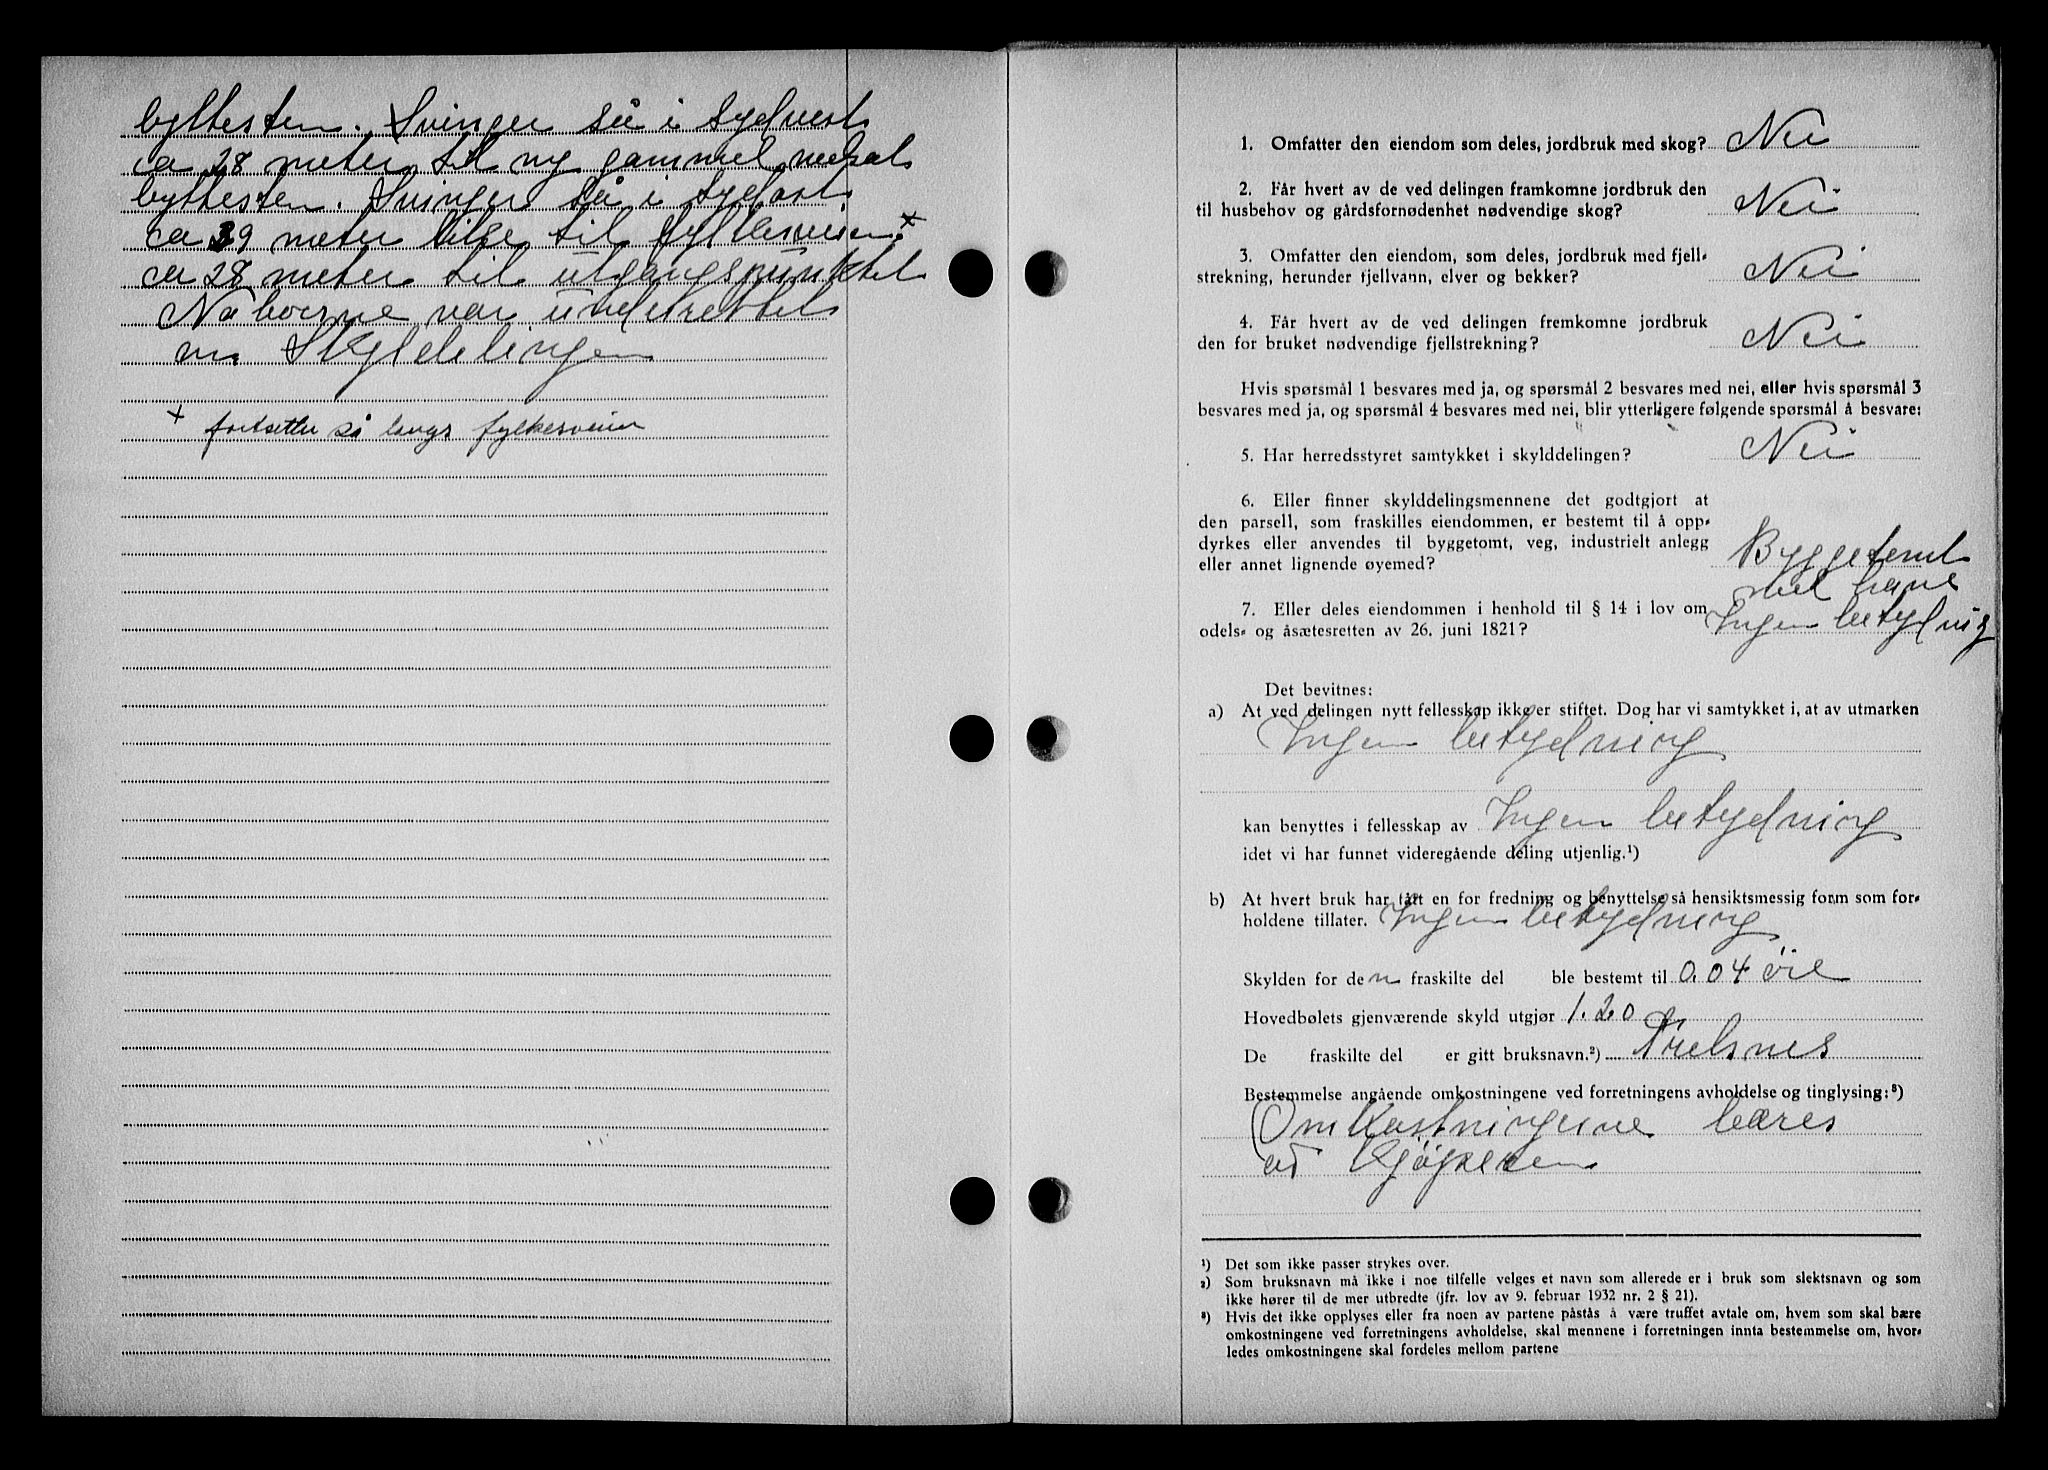 byttesten. Svinger så i sydvest
ca 28 meter til ny gammel nedsat
byttesten. Svinger så i sydøst
ca 39 meter like til fylkesveien. x
ca 28 meter til utgangspunktet
Naboerne var undetrettet
om Skylddelingen
x fortsetter så langs fylkesveien
1. Omfatter den eiendom som deles, jordbruk med skog? Nei
2. Får hvert av de ved delingen framkomne jordbruk den
til husbehov og gårdsfornødenhet nødvendige skog? Nei
3. Omfatter den eiendom, som deles, jordbruk med fjell-
strekning, herunder fjellvann, elver og bekker? Nei
4. Får hvert av de ved delingen fremkomne jordbruk
den for bruket nødvendige fjellstrekning? Nei
Hvis spørsmål 1 besvares med ja, og spørsmål 2 besvares med nei, eller hvis spørsmål 3
besvares med ja, og spørsmål 4 besvares med nei, blir ytterligere følgende spørsmål å besvare:
5. Har herredsstyret samtykket i skylddelingen? Nei
6. Eller finner skylddelingsmennene det godtgjort at
den parsell, som fraskilles eiendommen, er bestemt til å opp-
dyrkes eller anvendes til byggetomt, veg, industrielt anlegg
eller annet lignende øyemed? Byggetomt
med have
7. Eller deles eiendommen i henhold til § 14 i lov om
odels- og åsætesretten av 26. juni 1821? Ingen betydning
Det bevitnes:
a) At ved delingen nytt fellesskap ikke er stiftet. Dog har vi samtykket i, at av utmarken
Ingen betydning
kan benyttes i fellesskap av Ingen betydning
idet vi har funnet videregående deling utjenlig.¹)
b) At hvert bruk har fått en for fredning og benyttelse så hensiktsmessig form som for-
holdene tillater. Ingen betydning
Skylden for den fraskilte del ble bestemt til 0.04 øre
Hovedbølets gjenværende skyld utgjør 1.20
De fraskilte del er gitt bruksnavn.²)
Bestemmelse angående omkostningene ved forretningens avholdelse og tinglysing:³)
Omkostningene bæres
av Kjøperen
¹) Det som ikke passer strykes over.
²) Som bruksnavn må ikke i noe tilfelle velges et navn som allerede er i bruk som slektsnavn og som
ikke hører til de mer utbredte (jfr. lov av 9. februar 1932 nr. 2 § 21).
³) Hvis det ikke opplyses eller fra noen av partene påstås å være truffet avtale om, hvem som skal bære
omkostningene ved forretningens avholdelse, skal mennene i forretningen innta bestemmelse om, hvor-
ledes omkostningene skal fordeles mellom partene